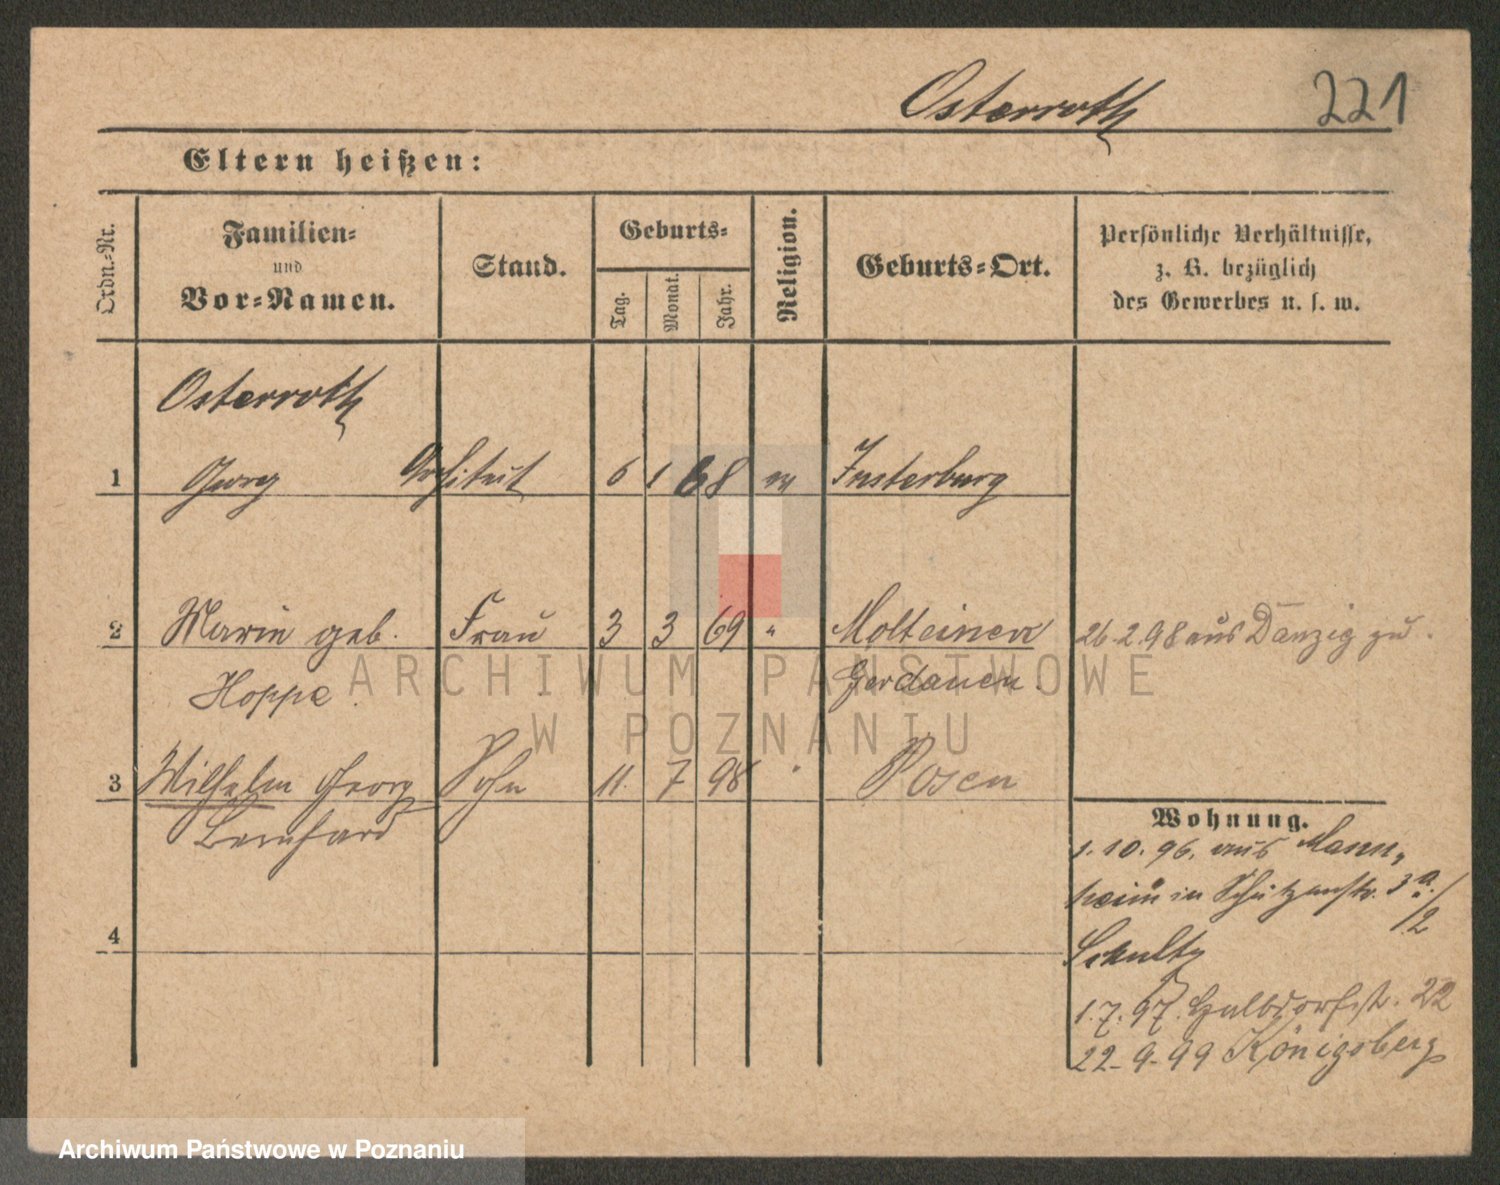 Osterroth 221
Eltern heißen:
Ordn.-Nr.
Familien-
und
Vor-Namen.
Stand.
Geburts-
Tag.
Monat.
Jahr.
Religion.
Geburts-Ort.
Persönliche Verhältnisse,
z. B. bezüglich
des Gewerbes u. s. w.
Osterroth
1 Georg Architekt 6 1 68 ev Insterburg
2 Marie geb. Frau 3 3 69 " Molteinen 26.2.98 aus Danzig zu.
Hoppe. Gerdauen.
3 Wilhelm Georg Sohn 11. 7 98 " Posen
Bernhard
Wohnung.
1.10.96. aus Mann-
heim in Schützenstr. 3a./2
4
Schultz
1.7.97. Halbdorfstr. 22
22-9-99 Königsberg
ARCHIWUM PAŃSTWOWE
W POZNANIU
Archiwum Państwowe w Poznaniu